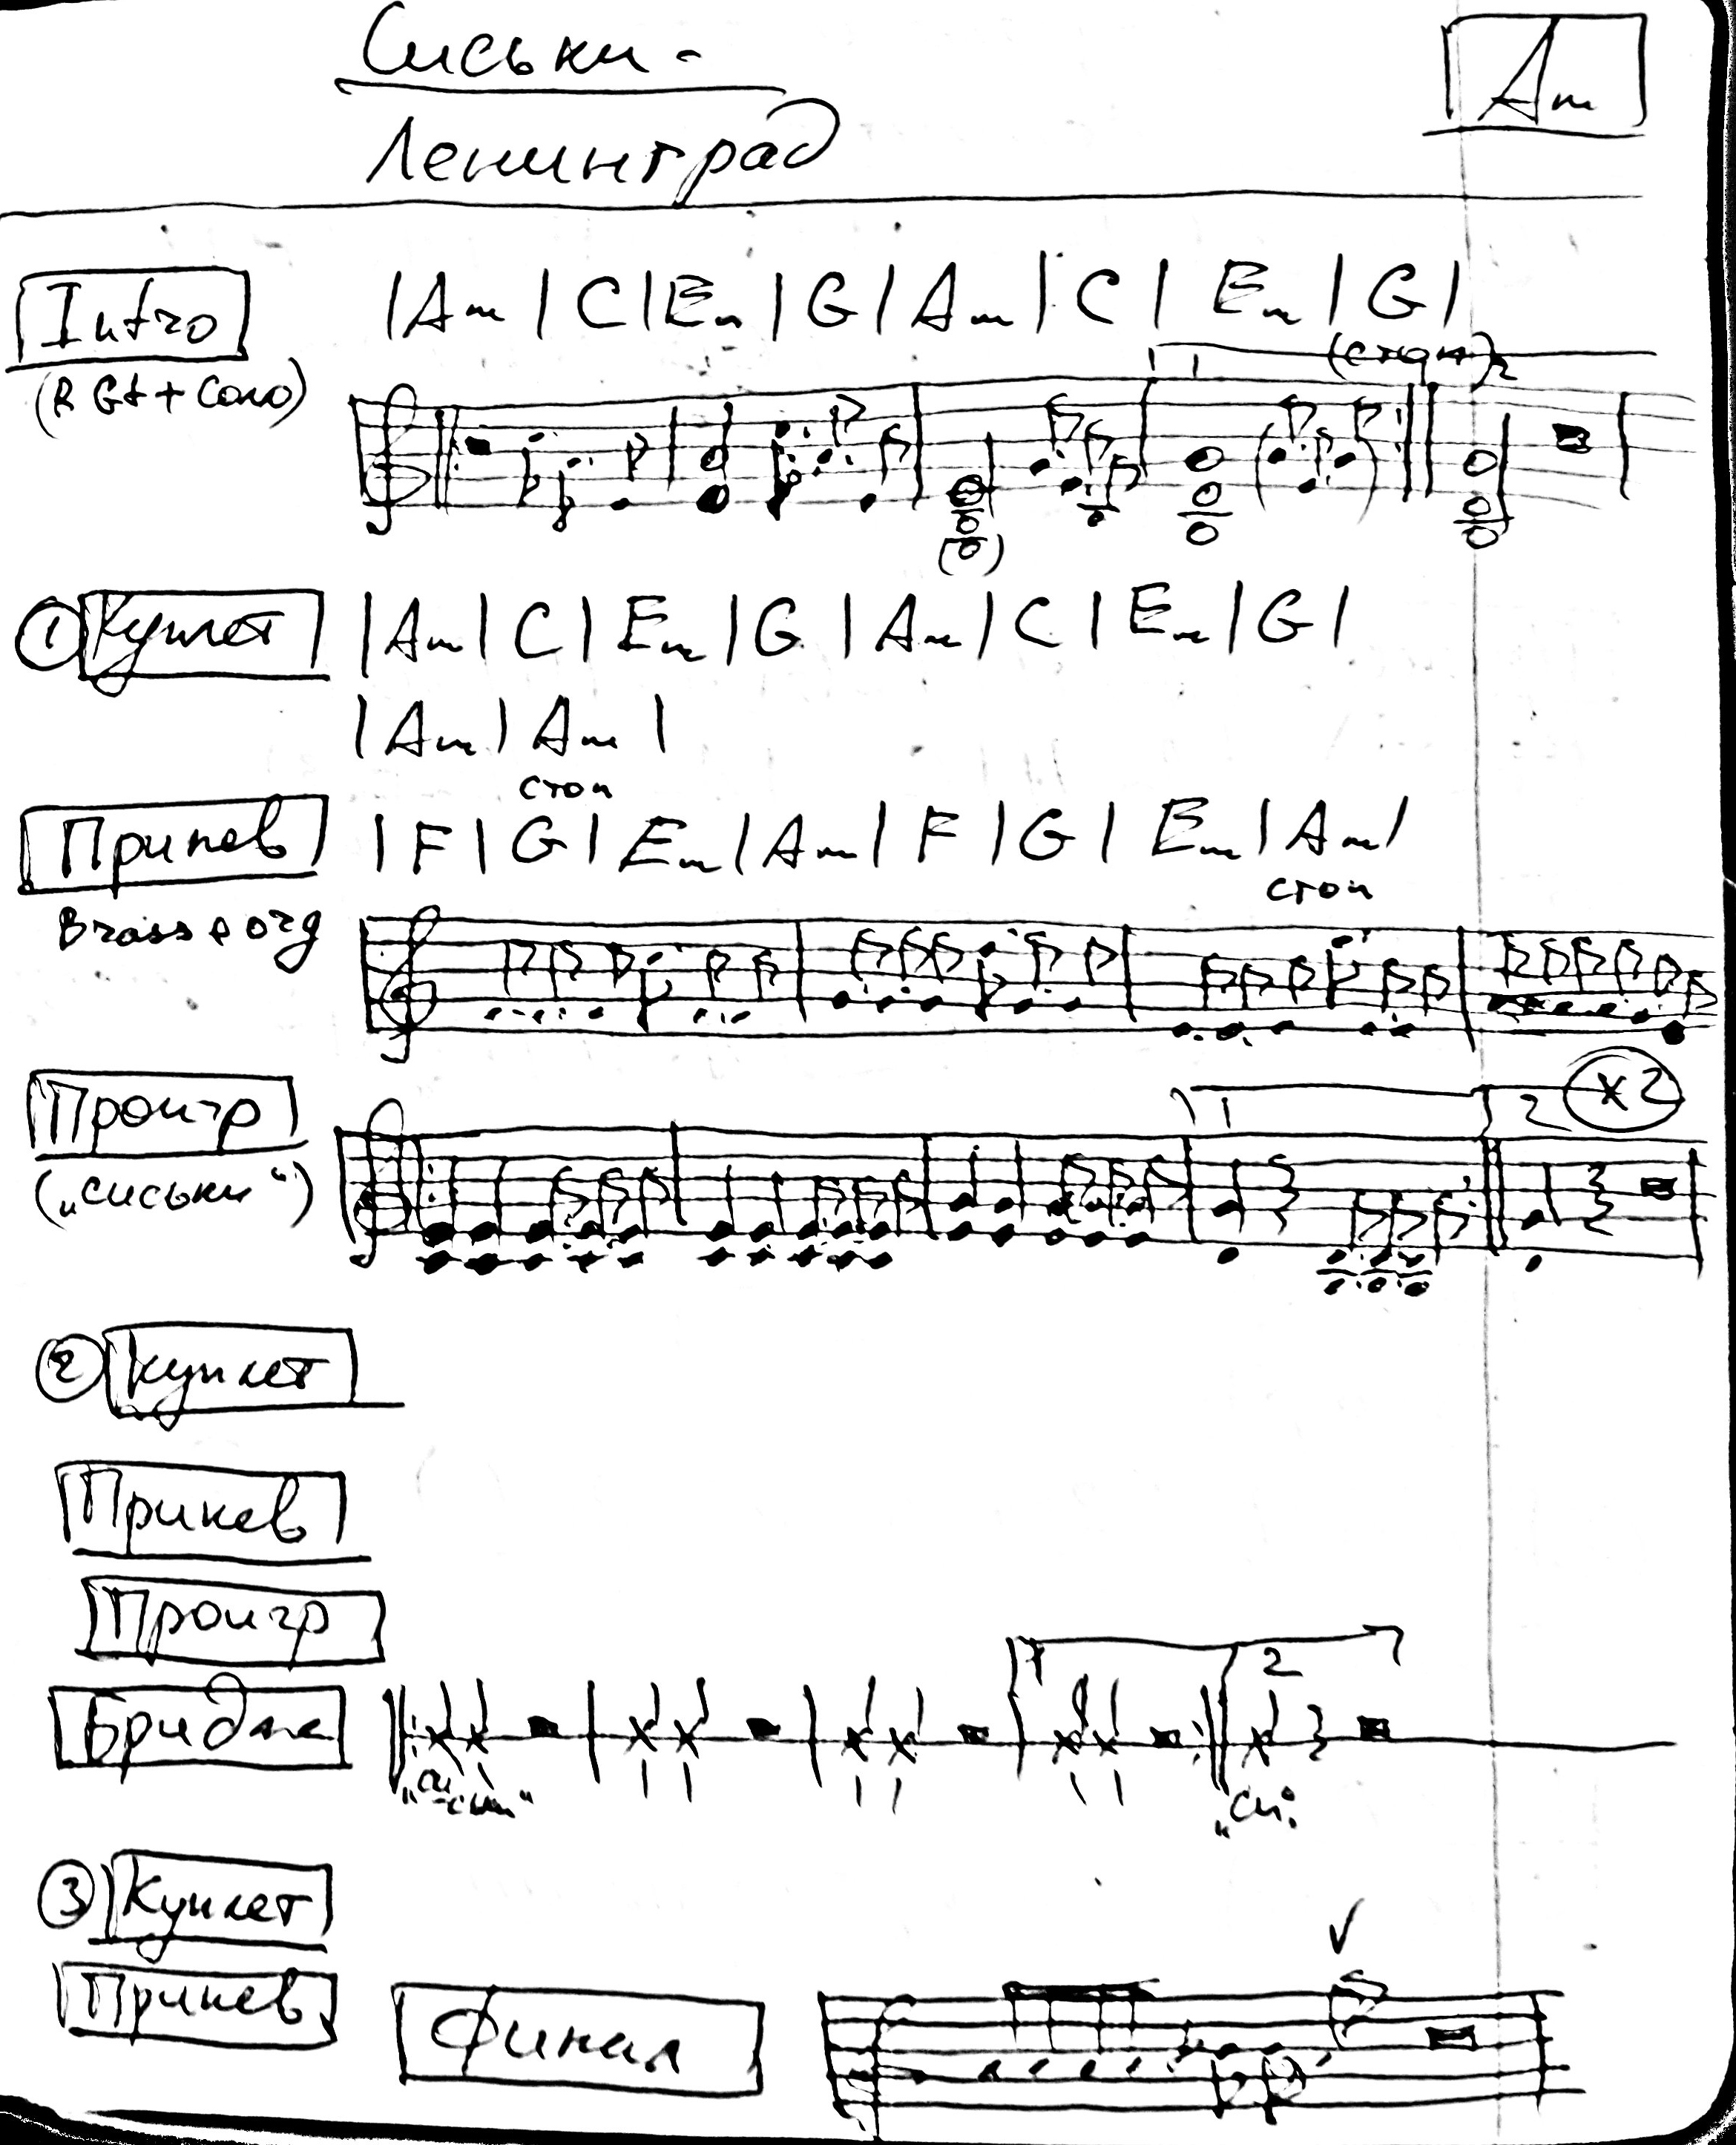 Сиськи -
Ленинград
Am
Intro | Am | C | Em | G | Am | C | Em | G |
(R Gt + Соло)
1 (стоп) 2
① Куплет | Am | C | Em | G | Am | C | Em | G |
| Am | Am |
стоп
Припев | F | G | Em | Am | F | G | Em | Am |
стоп
Brass e org
Проигр 1 2 x2
("сиськи")
② Куплет
Припев
Проигр
1 2
Бридж
"си
-ськи"
"си"
③ Куплет
Припев
Финал